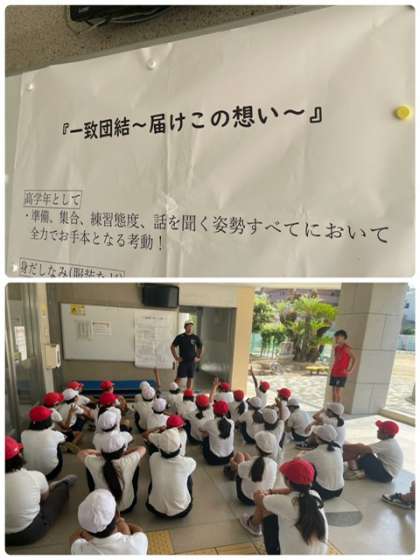 『一致団結～届けこの想い～』
高学年として
・準備、集合、練習態度、話を聞く姿勢すべてにおいて
全力でお手本となる考動！
身だしなみ(服装など)